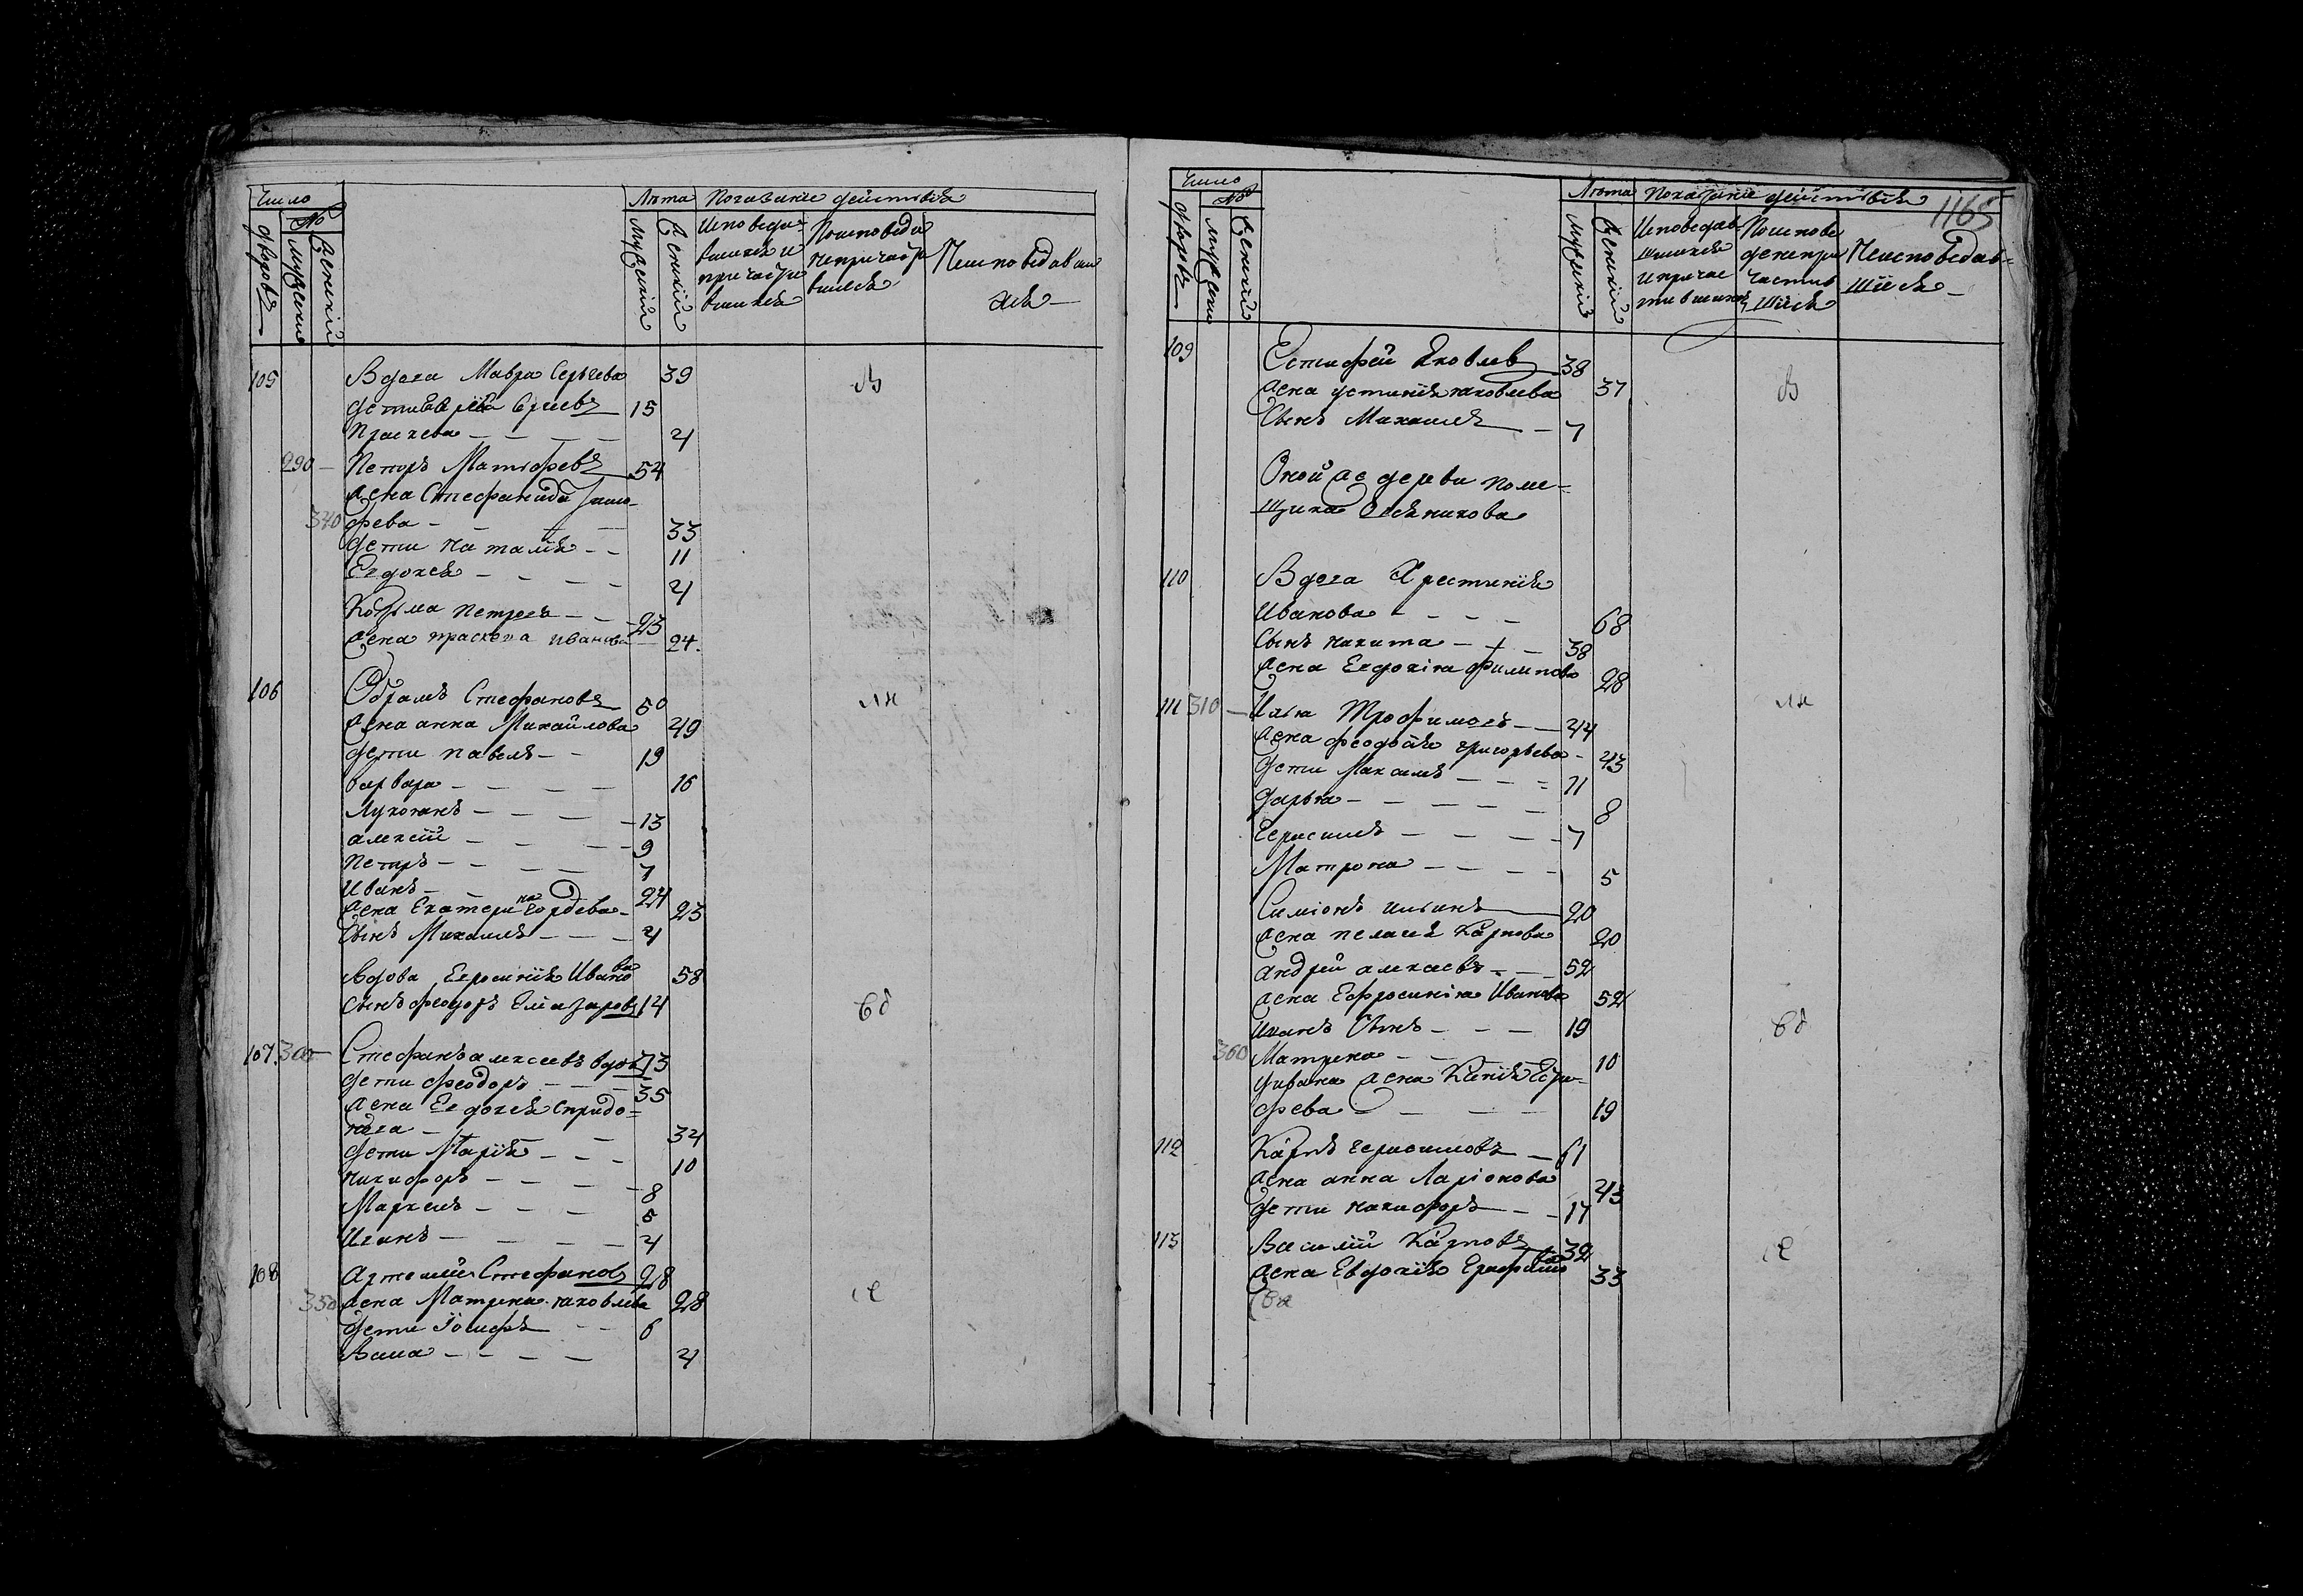 Число
№
Лѣта Показаніе действія
дворовъ
Мужески
Женскій
Мужескій
Женскій
Исповеда-
вшихся и
причасти
вшихся
Поисповеди
непричасти
вшися
Неисповедавши
хся
105 Вдова Мавра Сергѣева 39
дети 15
Праскева 4
290 Петръ Матфеевъ 54
жена Стефанида Тимо-
340 фева 33
дети Наталія 11
Евдокея 4
Козьма Петровъ 23
жена праскева иванова 24
106 Абрамъ Стефановъ 50
жена анна Михайлова 49
дети павелъ 19
варвара 16
Лукоянъ 13
алексій 9
Петръ 7
Иванъ 24
жена Екатерина Гордѣева 23
Сынъ Михаилъ 4
Вдова Ефросинія Иванова 58
Сынъ феодоръ Елиазаровъ 14
107 300 Стефанъ алексеевъ вдовъ 73
дети феодоръ 35
жена Евдокея Спиридо-
нова 34
дети Марія 10
Никифоръ 8
Маркелъ 5
Иванъ 4
108 Артемий Стефановъ 28
350 жена Матрена яковлева 28
дети Іосифъ 6
Васса 4
1165
Число
№
Лѣта Показаніе действія
дворовъ
Мужески
Женскій
Мужескій
Женскій
Исповедав-
шихся
и причас
тившихся
Поиспове
дении
частив
шися
Неисповедав-
шійся
109 Естифей Яковлевъ 38
жена устинія яковлева 37
Сынъ Михаилъ 7
Оной же дервни поме-
щика
110 Вдова Христинія
Иванова 68
Сынъ никита 38
жена Евдокія филипова 28
111 310 Илья Трофимовъ 44
жена феодосія григорьева 43
дети Максимъ 11
дарья 8
Герасимъ 7
Матрона 5
Симіонъ ильинъ 20
жена пелагея Карпова 20
андрей алексѣевъ 52
жена Ефросинія Иванова 52
Иванъ Сынъ 19
360 Матрена 10
Ивана жена Ксенія
фева 19
112 Карпъ герасимовъ 61
жена анна Ларіонова 43
дети никифоръ 17
113 Василій Карповъ 32
жена Евдокія 33